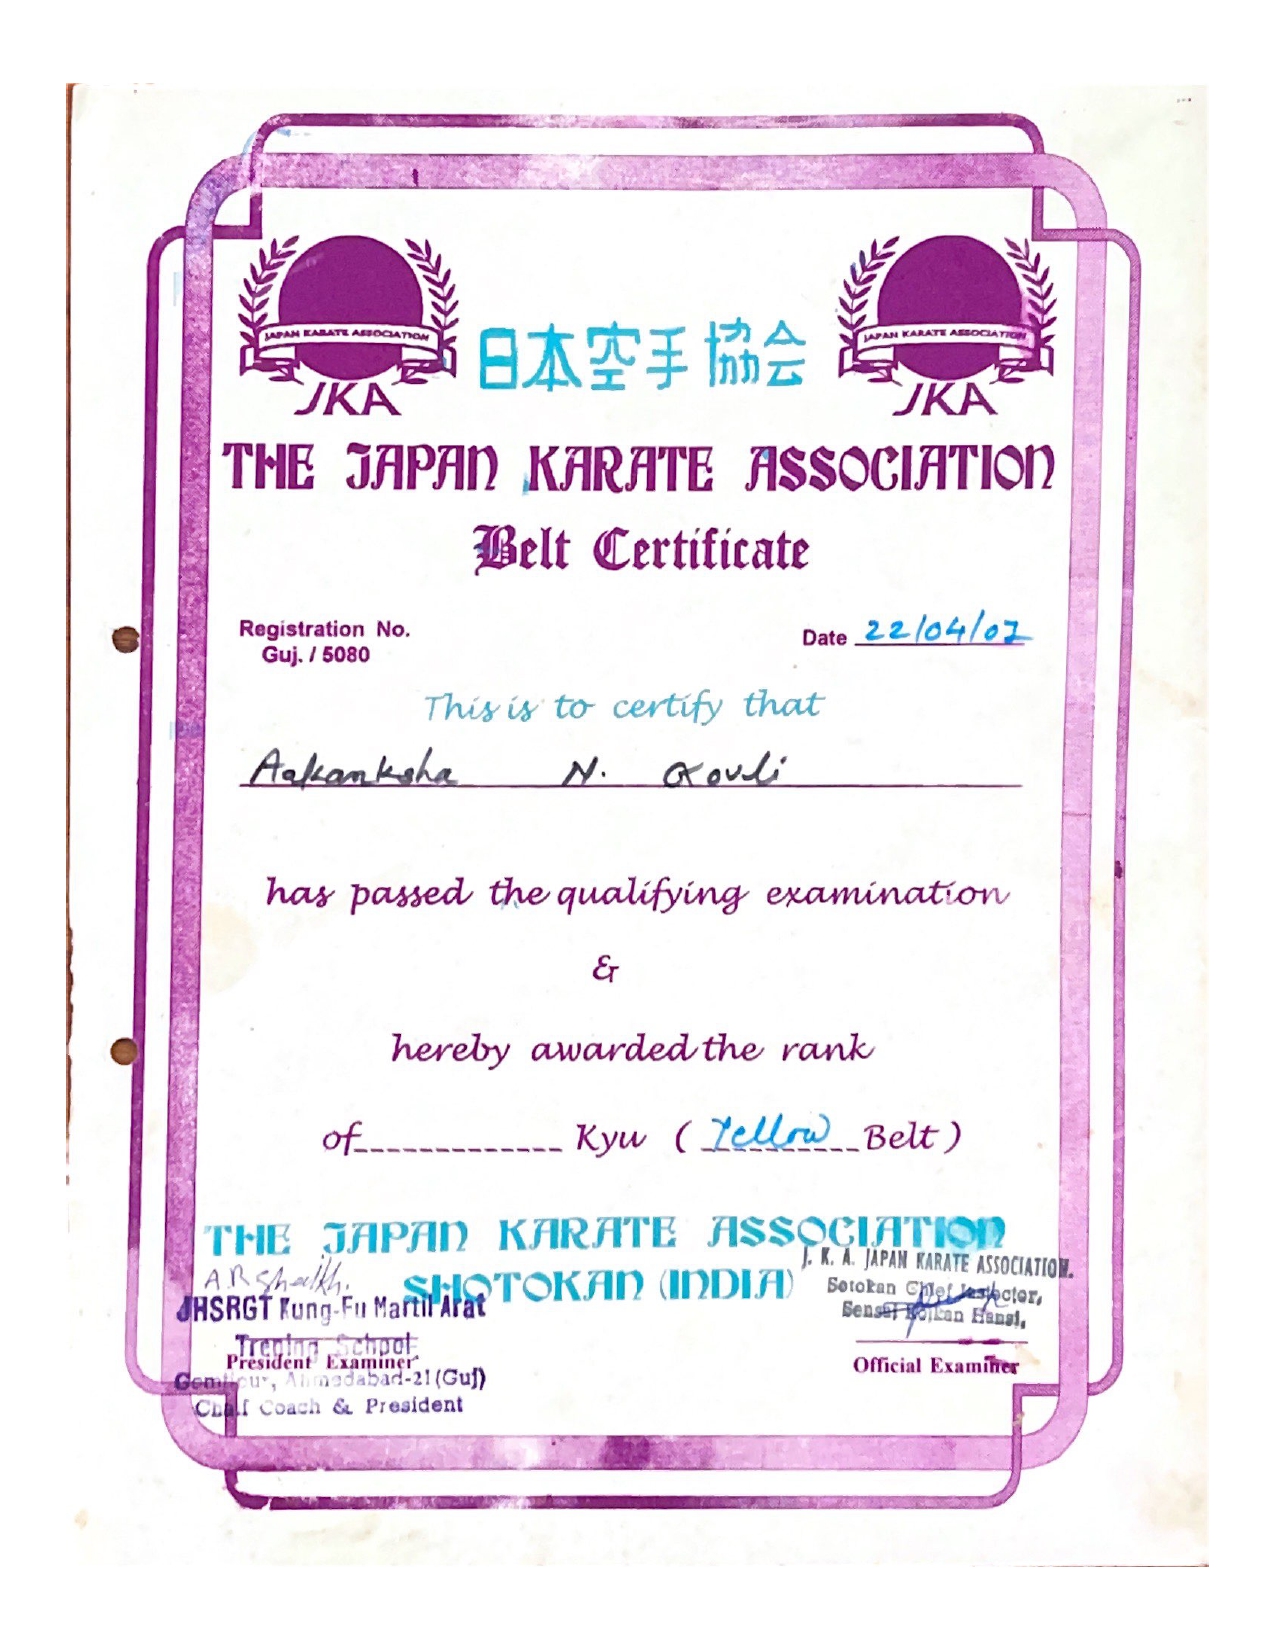 JAPAN KARATE ASSOCIATION
JKA
JAPAN KARATE ASSOCIATION
JKA
日本空手協会
THE JAPAN KARATE ASSOCIATION
Belt Certificate
Registration No.
Guj. / 5080
Date 22/04/07
This is to certify that
Aakanksha N.
has passed the qualifying examination
&
hereby awarded the rank
of Kyu ( Yellow Belt )
THE JAPAN KARATE ASSOCIATION
SHOTOKAN (INDIA)
A.R. Sheikh.
JHSRGT Kung-Fu Martil Arat
Trening School
President Examiner
Gomtipur, Ahmedabad-21 (Guj)
Chaif Coach & President
J. K. A. JAPAN KARATE ASSOCIATION.
Sotokan Chief
Sensei Hansi,
Official Examiner